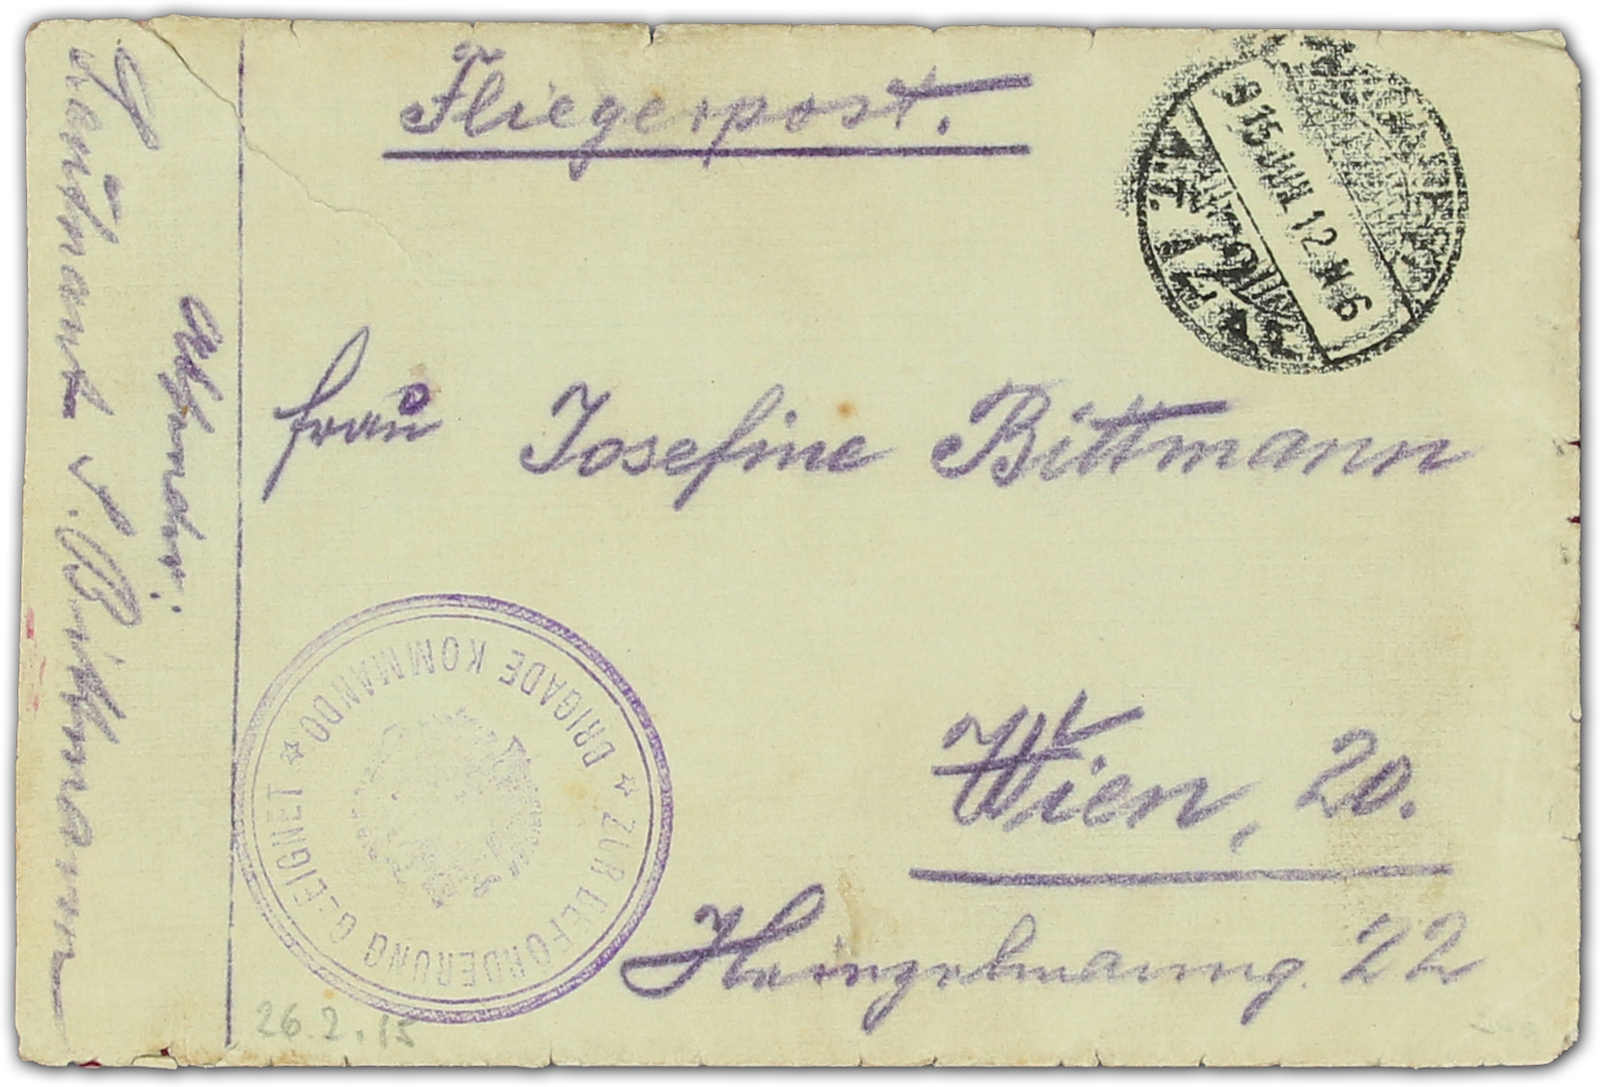 Fliegerpost.
915 JUN. 12 N 6
Frau Josefine Bittmann
Wien, 20.
22
Absender:
Leutnant S. Bittmann
★ BRIGADE KOMMANDO ★
ZUR BEFÖRDERUNG GEEIGNET
26.2.15